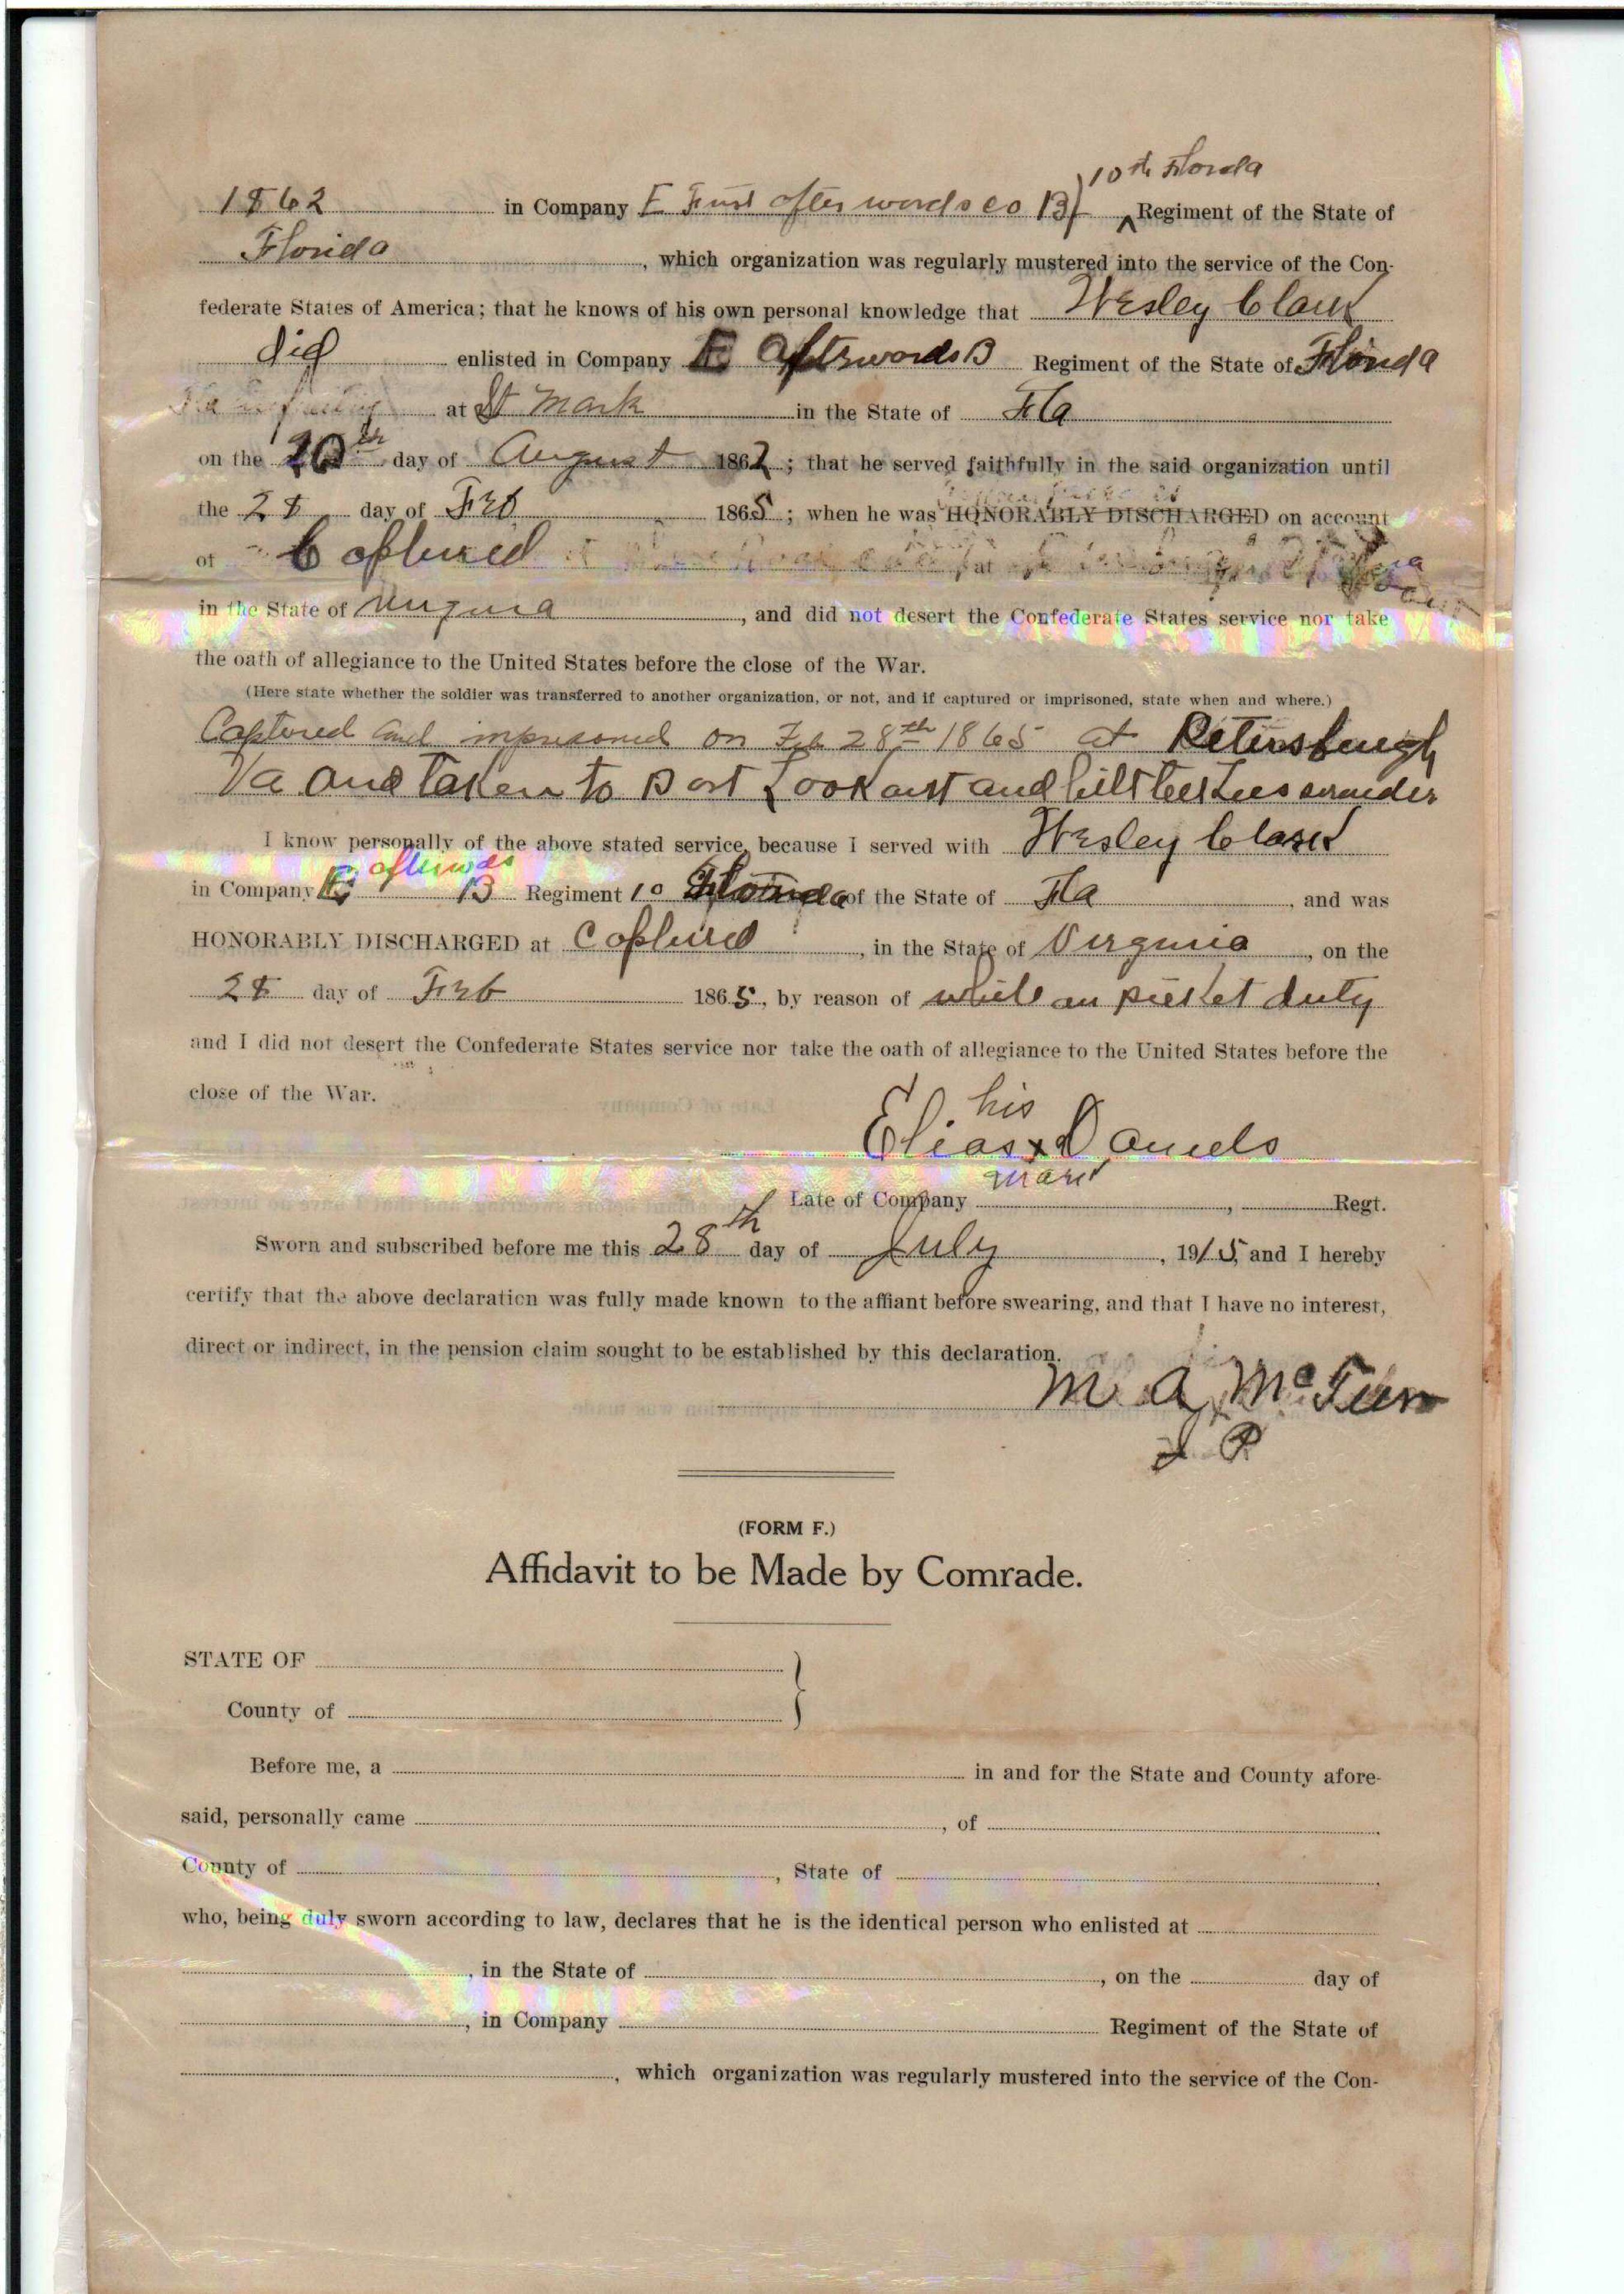 10th Florida
1862 in Company E First after words co B Regiment of the State of
Florida, which organization was regularly mustered into the service of the Con-
federate States of America; that he knows of his own personal knowledge that Wesley Clark
did enlisted in Company E Afterwords B Regiment of the State of Florida
at St Mark in the State of Fla
on the 20th day of August 1862; that he served faithfully in the said organization until
the 28 day of Feb 1865; when he was HONORABLY DISCHARGED on account
of Coptured at
in the State of Virginia, and did not desert the Confederate States service nor take
the oath of allegiance to the United States before the close of the War.
(Here state whether the soldier was transferred to another organization, or not, and if captured or imprisoned, state when and where.)
Captured and imprisoned on Feb 28th 1865 at Petersburgh
Va and taken to Port Look out and hilt till Lees surunder
I know personally of the above stated service, because I served with Wesley Clark
afterwds
in Company E B Regiment 10 Florida of the State of Fla and was
HONORABLY DISCHARGED at Coptured, in the State of Virginia, on the
28 day of Feb 1865, by reason of while on picket duty
and I did not desert the Confederate States service nor take the oath of allegiance to the United States before the
close of the War.
his
Elias x Daniels
mark
Late of Company , Regt.
Sworn and subscribed before me this 28th day of July, 1915, and I hereby
certify that the above declaration was fully made known to the affiant before swearing, and that I have no interest,
direct or indirect, in the pension claim sought to be established by this declaration.
M A
J P
(FORM F.)
Affidavit to be Made by Comrade.
STATE OF
County of
Before me, a in and for the State and County afore-
said, personally came , of
County of , State of
who, being duly sworn according to law, declares that he is the identical person who enlisted at
, in the State of , on the day of
, in Company Regiment of the State of
, which organization was regularly mustered into the service of the Con-